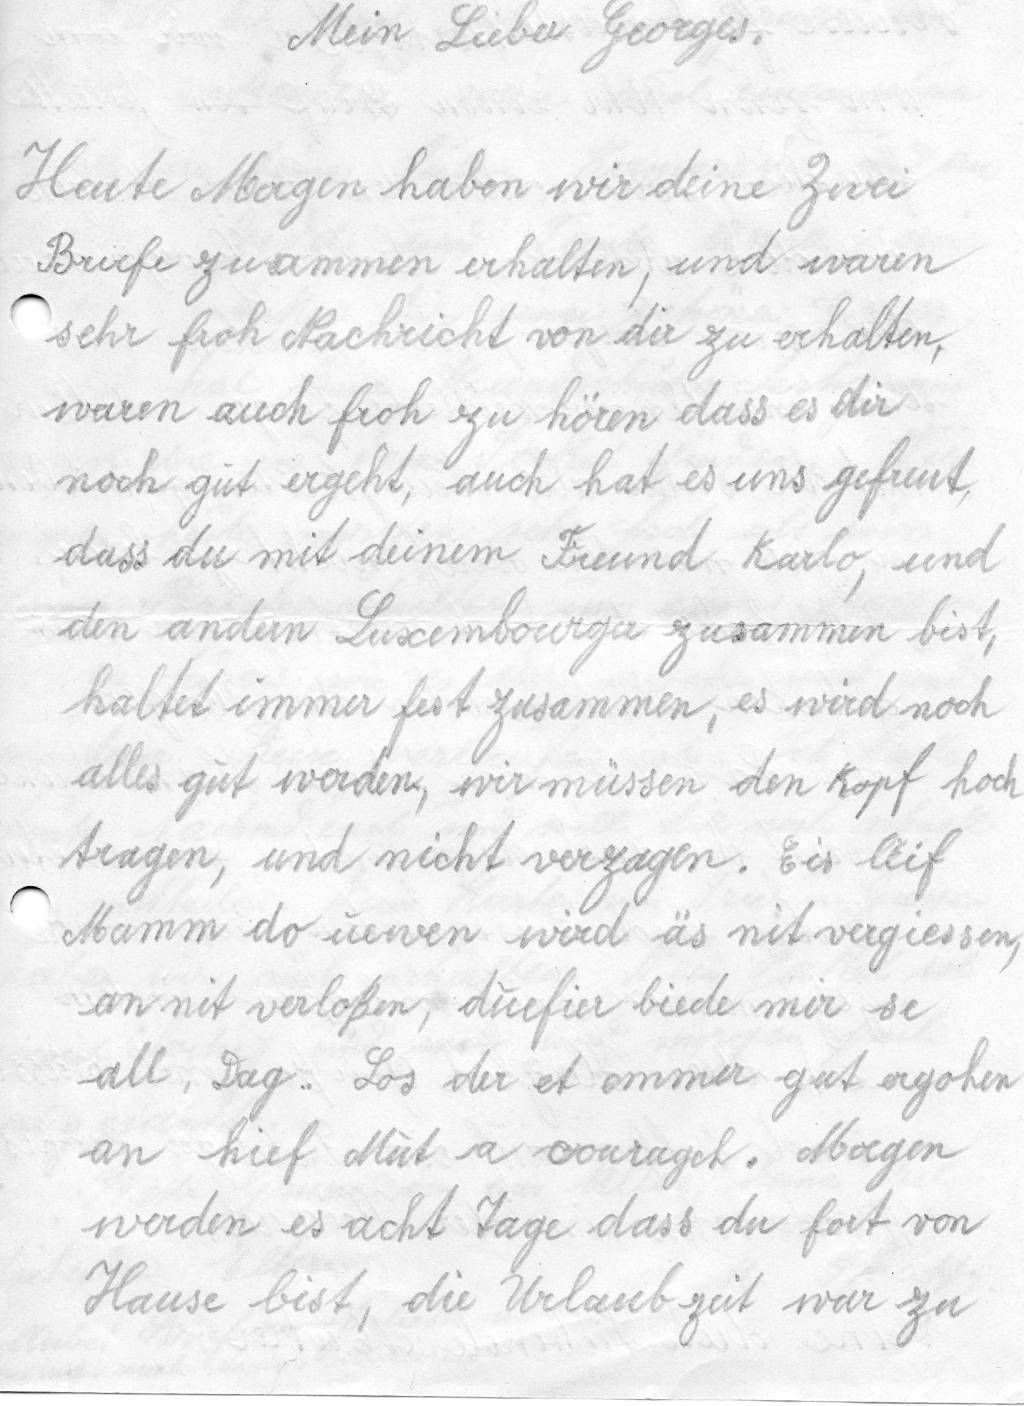 Mein Lieber Georges.
Heute Morgen haben wir deine Zwei
Briefe zusammen erhalten, und waren
sehr froh Nachricht von dir zu erhalten,
waren auch froh zu hören dass es dir
noch gut ergeht, auch hat es uns gefreut,
dass du mit deinem Freund Karlo, und
den andern Luxembourger zusammen bist,
haltet immer fest zusammen, es wird noch
alles gut werden, wir müssen den Kopf hoch
tragen, und nicht verzagen. Eis léif
Mamm do uewen wird äs nit vergiessen,
an nit verloßen, duefier biede mir se
all, Dag.. Los der et ommer gut ergohen
an hief Mut a couragch. Morgen
werden es acht Tage dass du fort von
Hause bist, die Urlaubzeit war zu